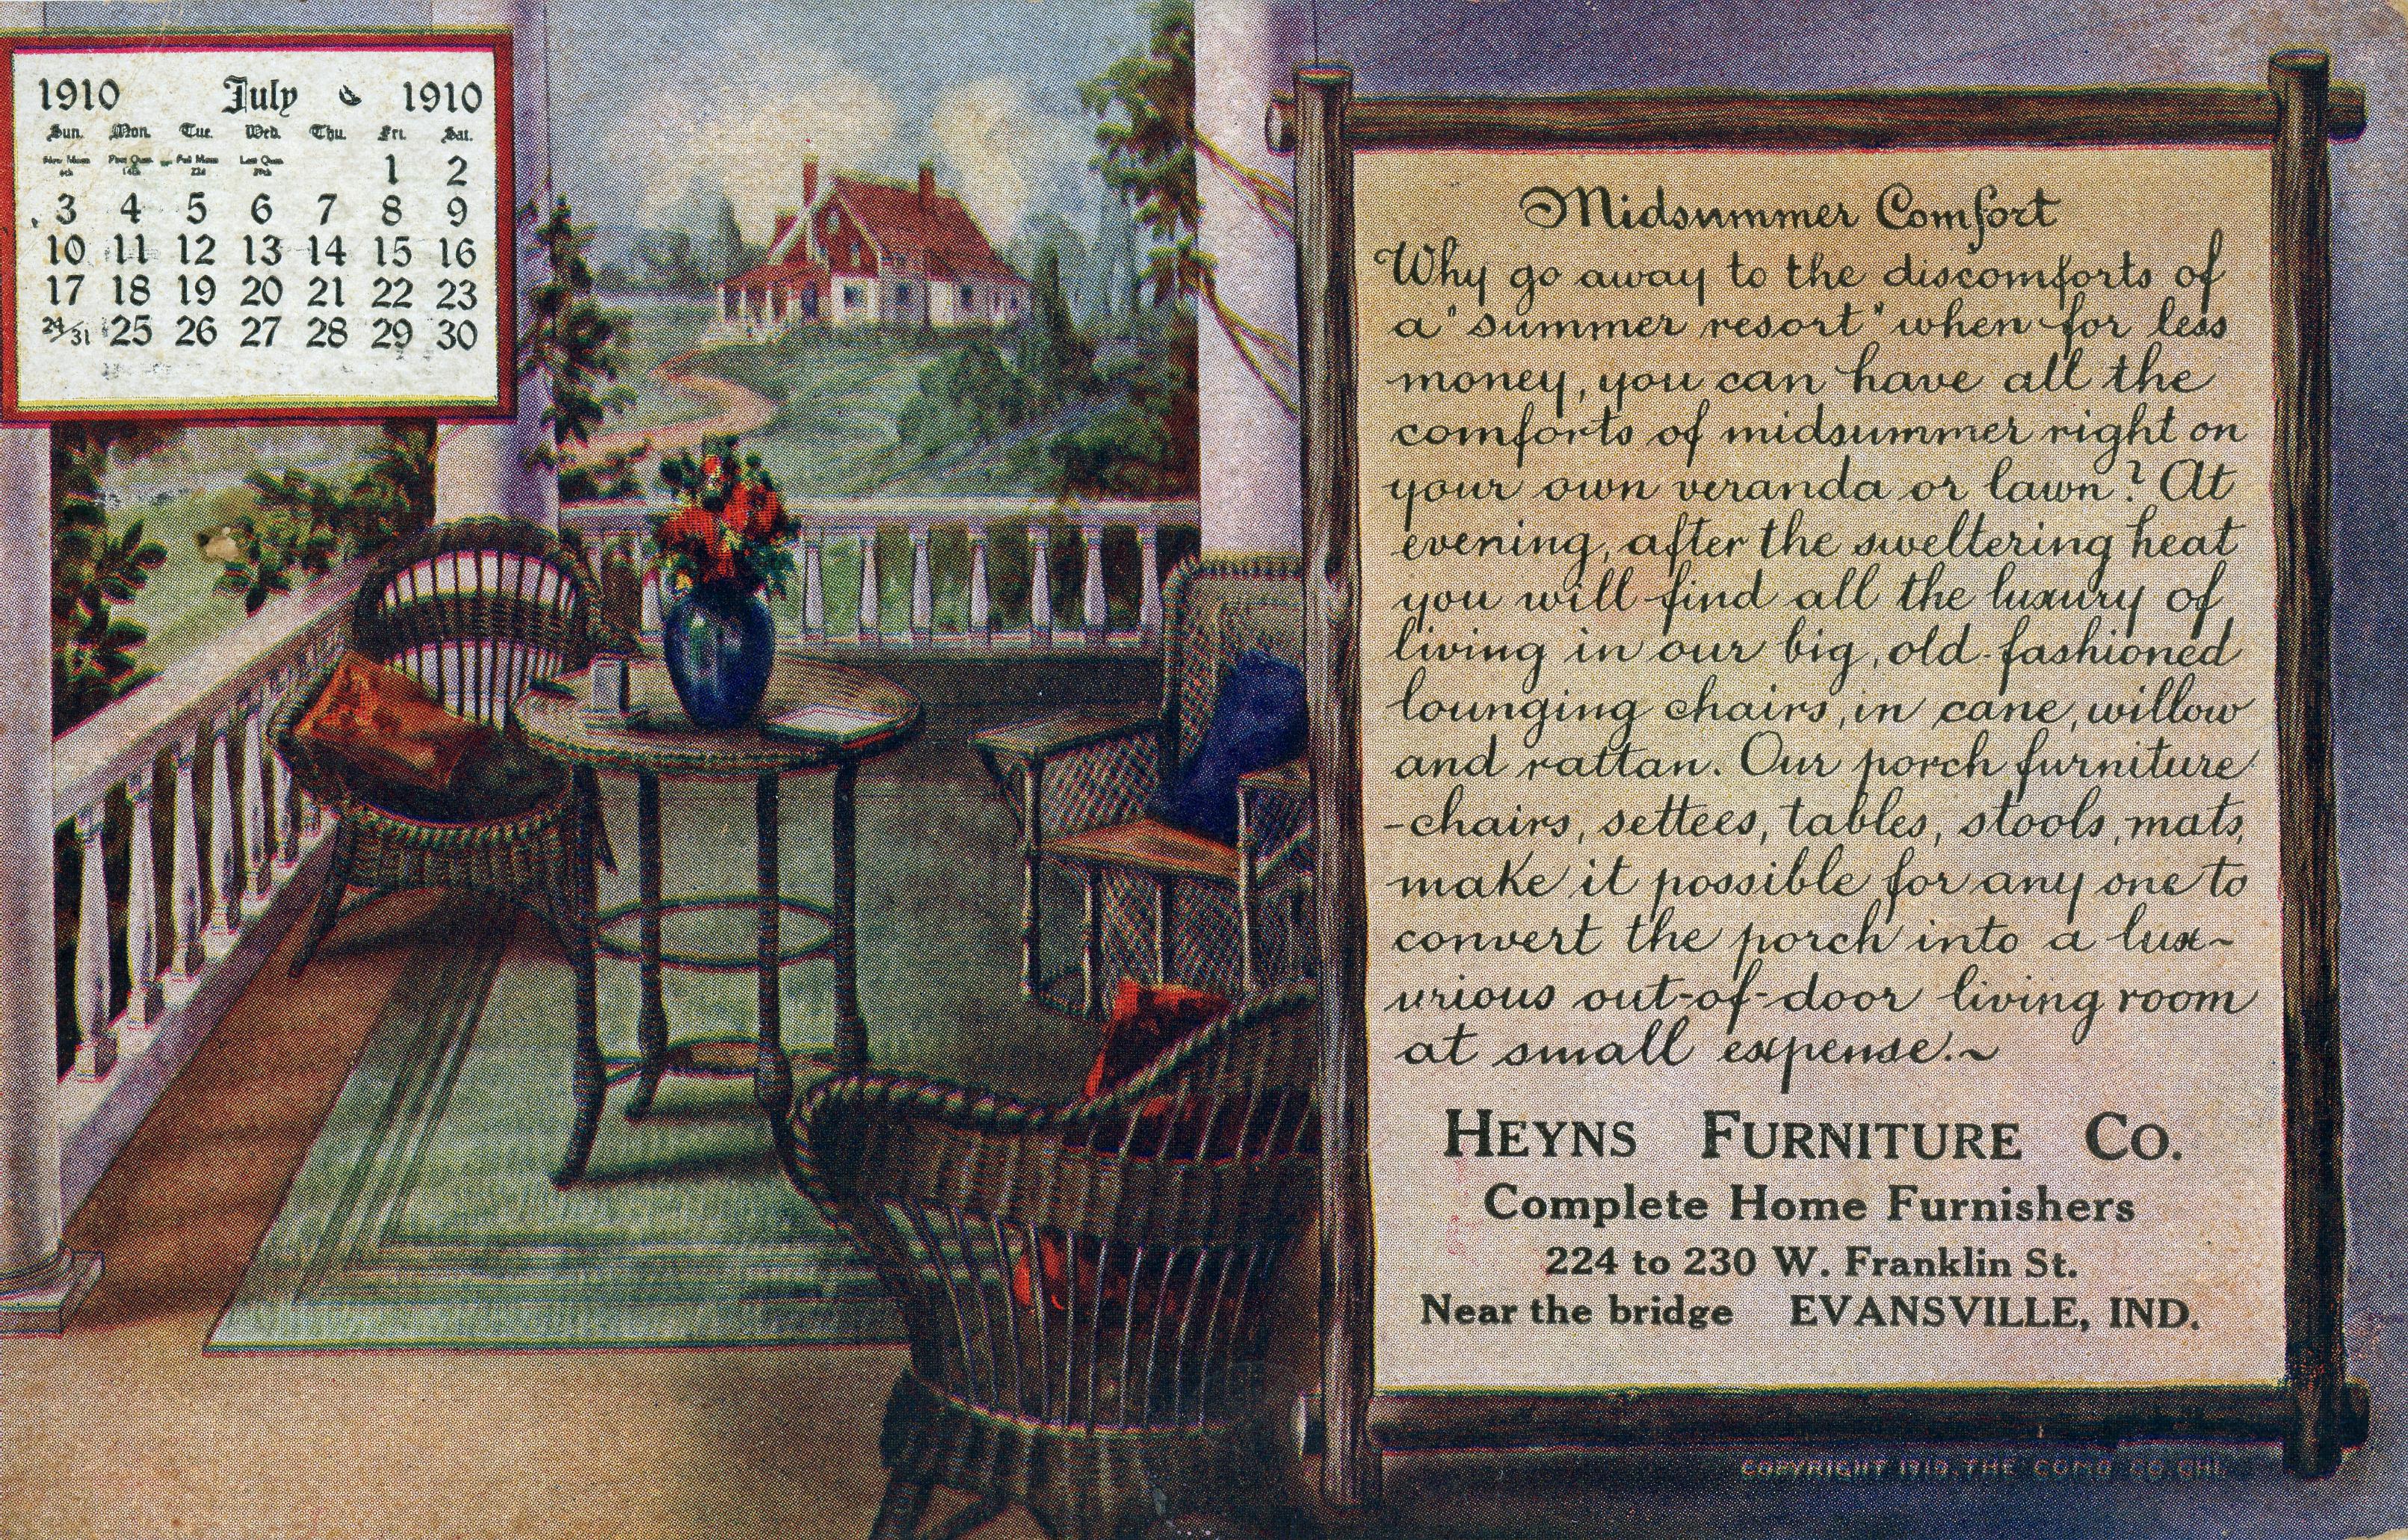 1910 July 1910
Sun. Mon. Tue. Wed. Thu. Fri. Sat.
New Moon 6th First Quar. 14th Full Moon 22d Last Quar. 29th 1 2
3 4 5 6 7 8 9
10 11 12 13 14 15 16
17 18 19 20 21 22 23
24/31 25 26 27 28 29 30
Midsummer Comfort
Why go away to the discomforts of
a "summer resort" when for less
money, you can have all the
comforts of midsummer right on
your own veranda or lawn? At
evening, after the sweltering heat
you will find all the luxury of
living in our big, old-fashioned
lounging chairs, in cane, willow
and rattan. Our porch furniture
-chairs, settees, tables, stools, mats,
make it possible for any one to
convert the porch into a lux~
urious out-of-door living room
at small expense.~
HEYNS FURNITURE CO.
Complete Home Furnishers
224 to 230 W. Franklin St.
Near the bridge EVANSVILLE, IND.
COPYRIGHT 1910, THE COMO CO. CHI.